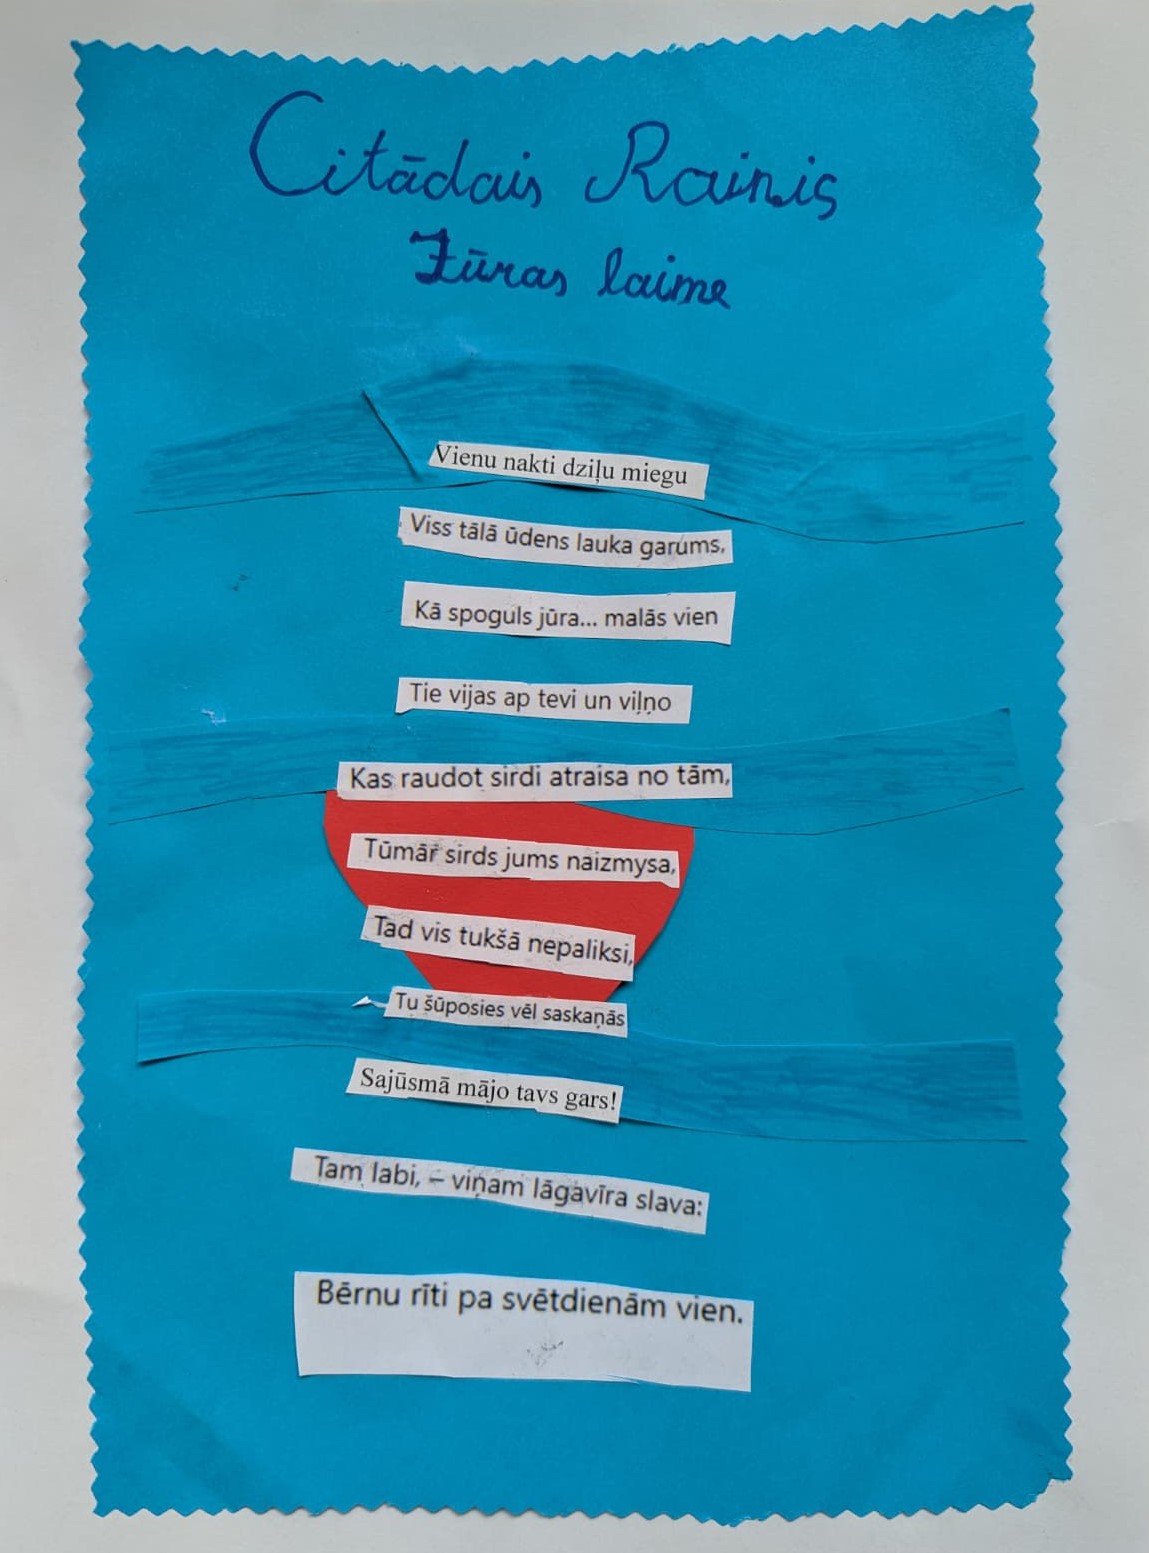 Citādais Rainis
Jūras laime
Vienu nakti dziļu miegu
Viss tālā ūdens lauka garums,
Kā spoguls jūra... malās vien
Tie vijas ap tevi un viļņo
Kas raudot sirdi atraisa no tām,
Tūmār sirds jums naizmysa,
Tad vis tukšā nepaliksi,
Tu šūposies vēl saskaņās
Sajūsmā mājo tavs gars!
Tam labi, – viņam lāgavīra slava:
Bērnu rīti pa svētdienām vien.